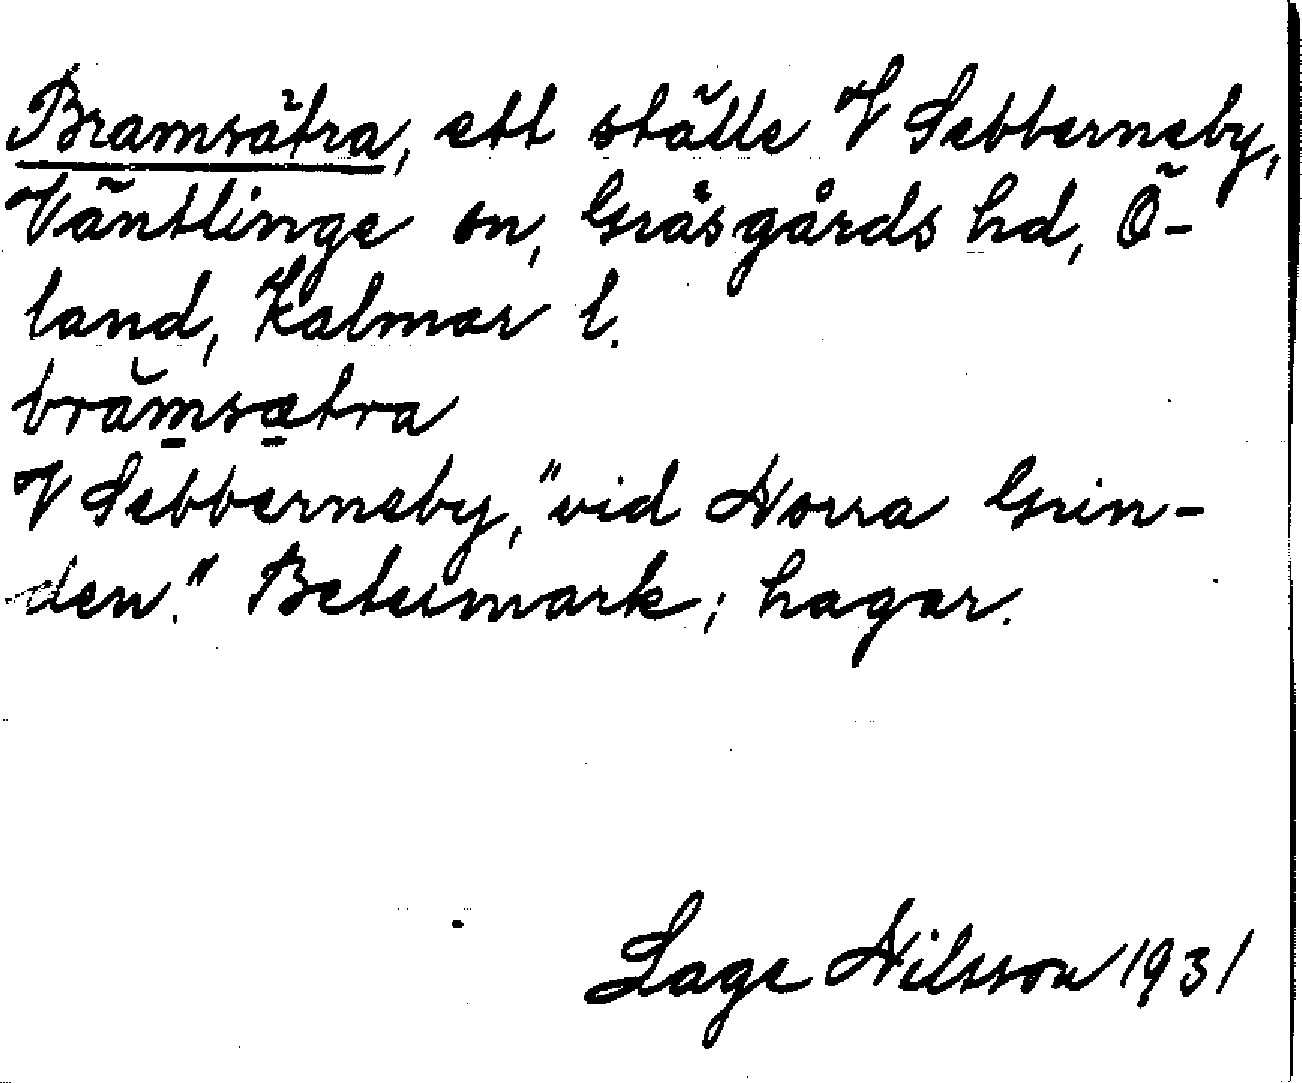 Bramsätra, ett ställe V Sebberneby,
Väntlinge sn, Gräsgårds hd, Ö-
land, Kalmar l.
brămsætra
V Sebberneby, "vid Norra Grin-
den." Betesmark; hagar.
Lage Nilsson 1931